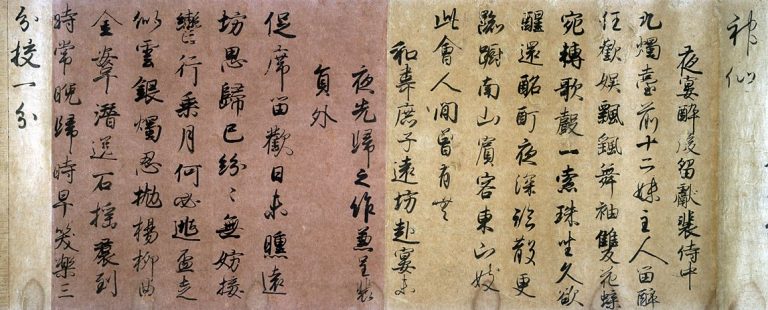 神仙
夜宴醉後留獻裴侍中
九燭臺前十二姝主人留醉
任歡娯飄颻舞袖雙飛蝶
宛轉歌聲一索珠坐久欲
醒還酩酊夜深臨散更
踟躕南山賓客東山妓
此會人間曾有無
和韋庶子遠坊赴宴未
夜先歸之作兼呈裴
員外
促席留歡日未曛遠
坊思歸已紛々無妨按
轡行乘月何必逃盃走
似雲銀燭忍抛楊柳曲
金鞍潛送石榴裙到
時常晚歸時早笑樂三
分挍一分